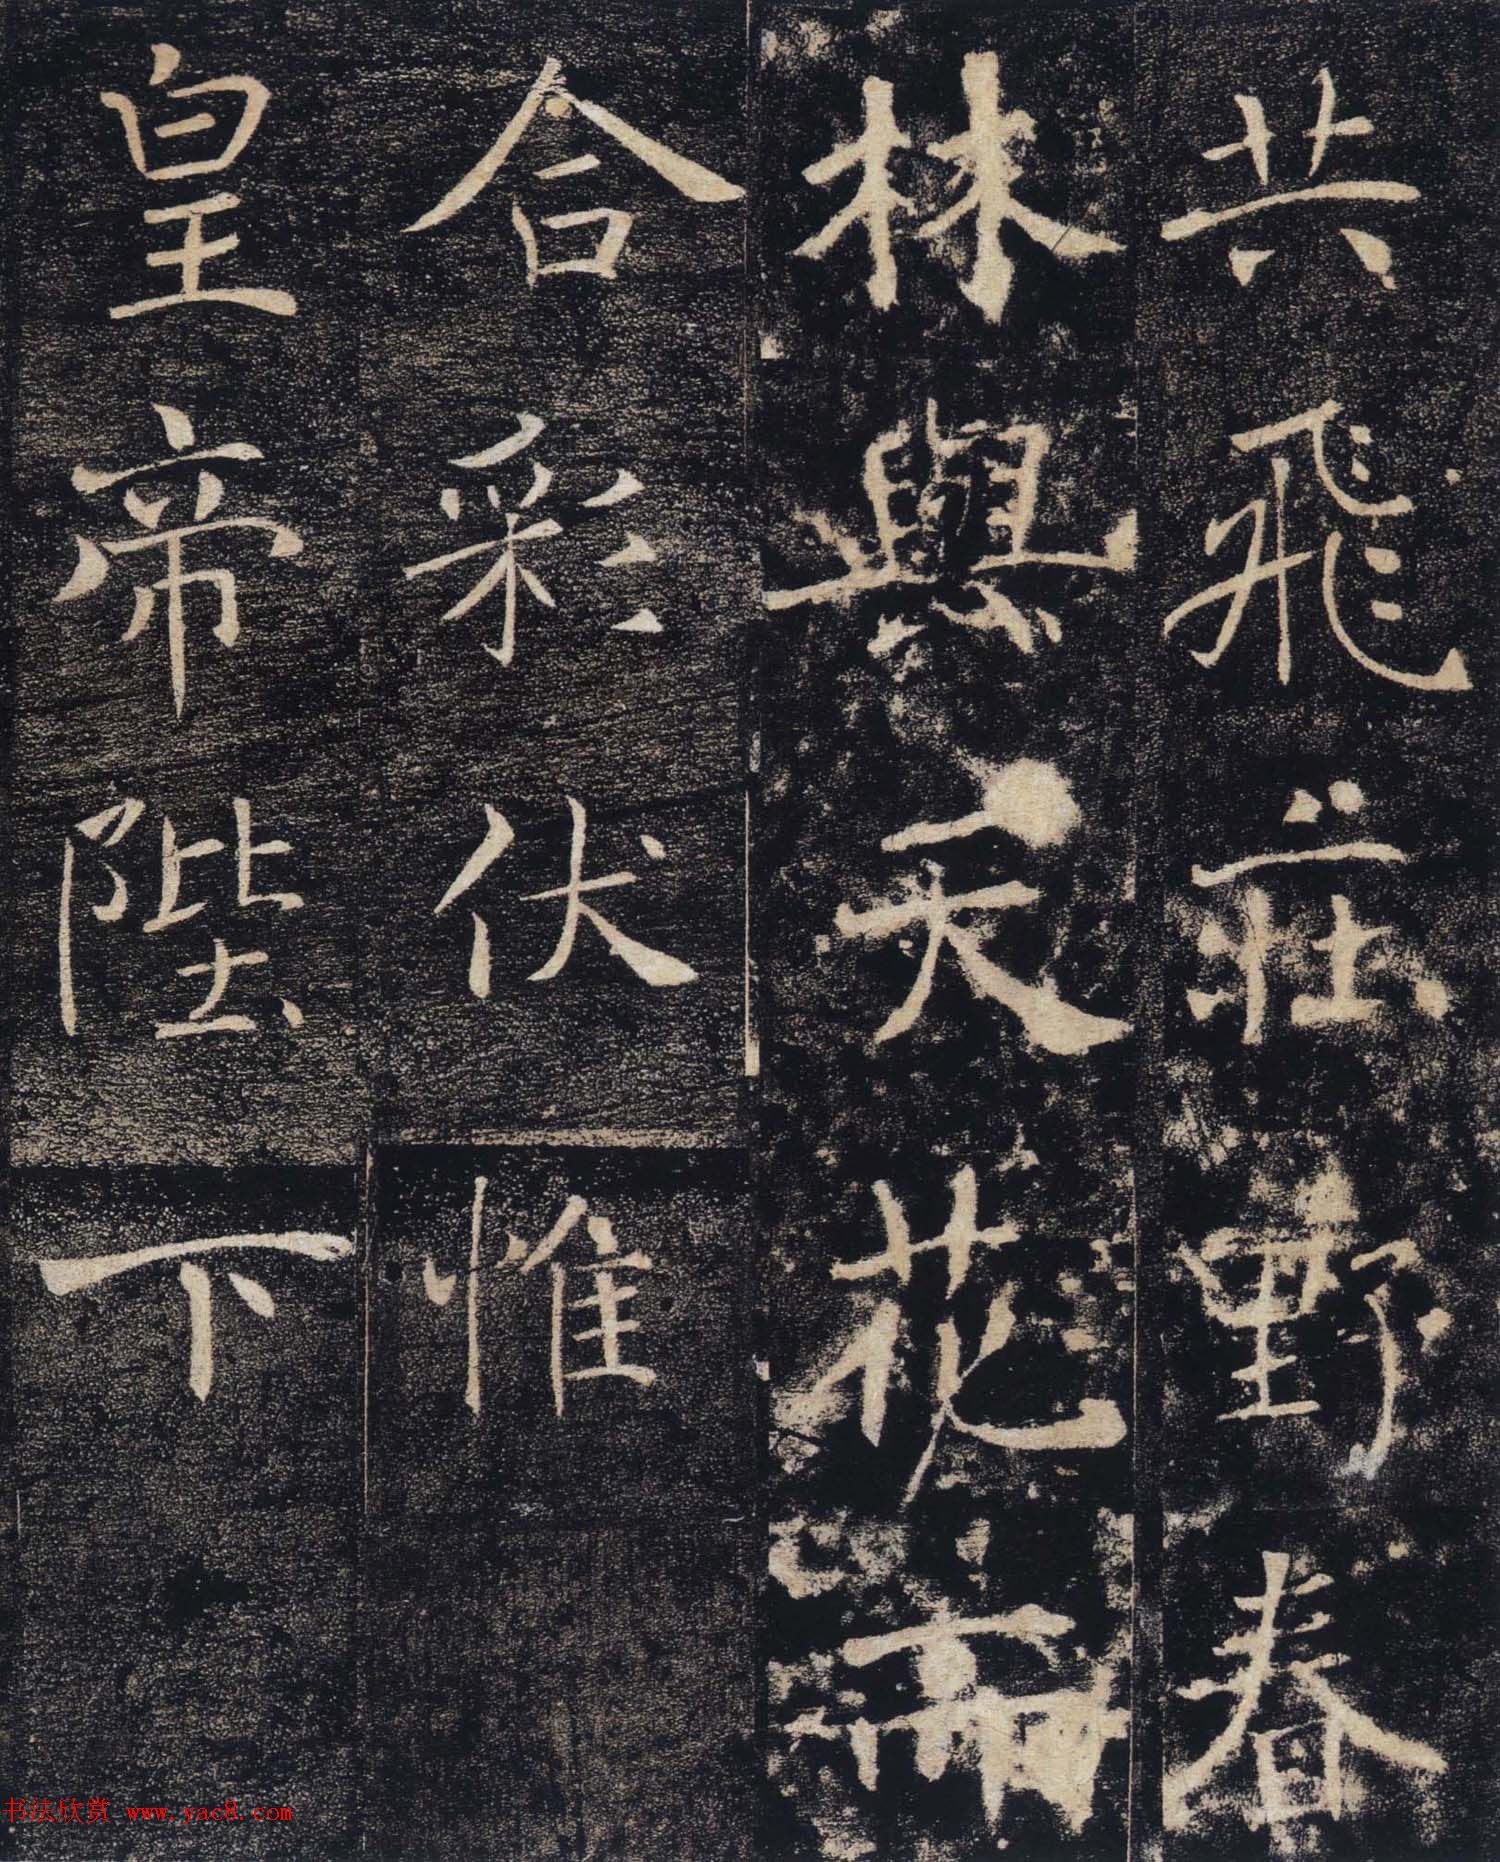 共飛莊野春
林與天花而
合彩伏惟
皇帝陛下
书法欣赏 www.yac8.com